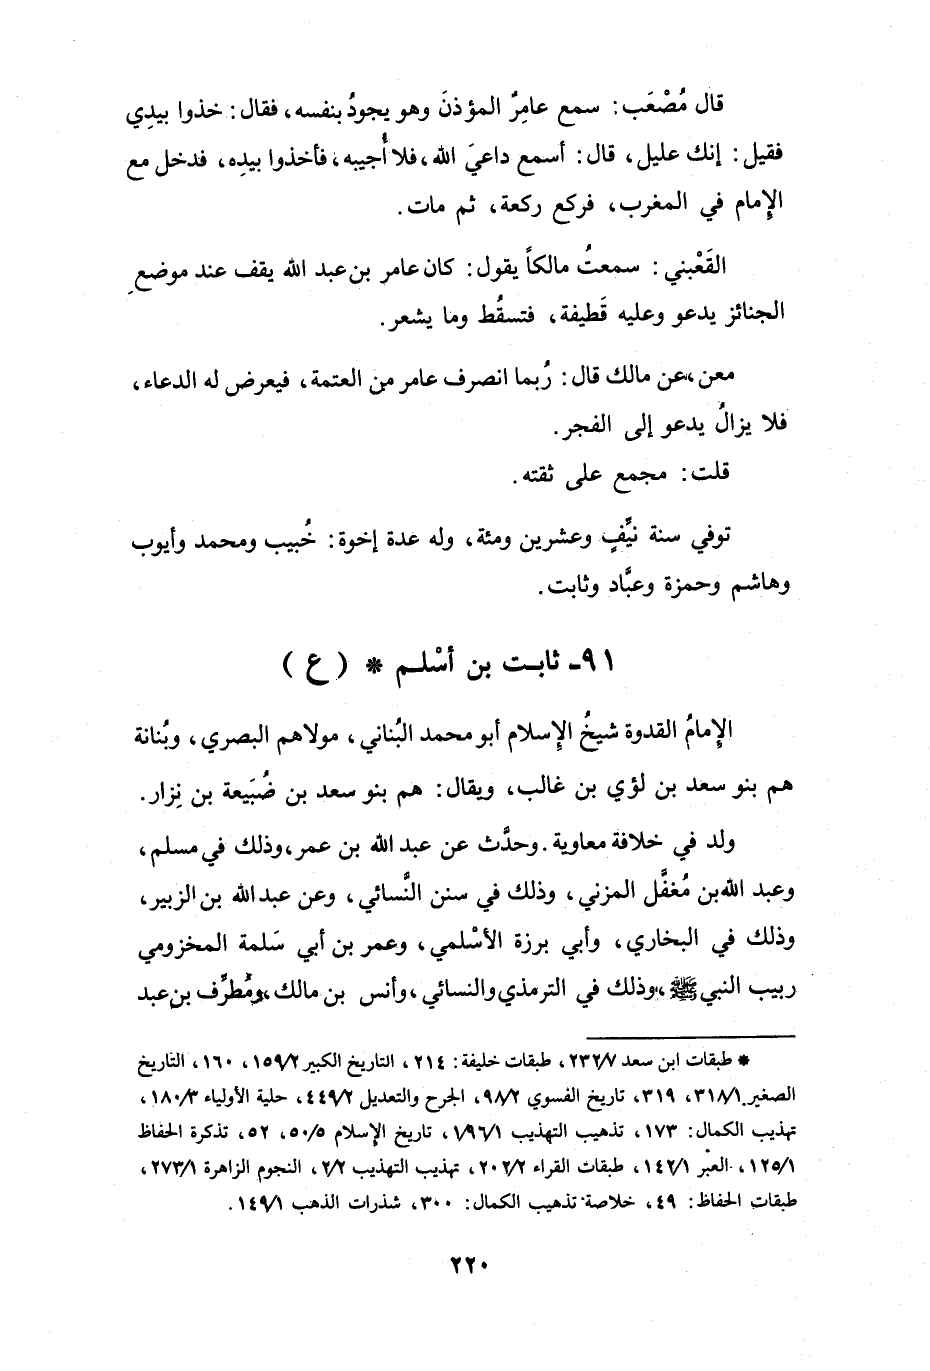 قال مُصْعَب: سمع عامِرٌ المؤذنَ وهو يجودُ بنفسه، فقال: خذوا بيدِي
فقيل: إنك عليل، قال: أسمع داعيَ الله، فلا أُجيبه، فأخذوا بيدِه، فدخل مع
الإمام في المغرب، فركع ركعة، ثم مات.
القَعْبني: سمعتُ مالكاً يقول: كان عامر بن عبد الله يقف عند موضعِ
الجنائز يدعو وعليه قَطيفة، فتسقُط وما يشعر.
معن، عن مالك قال: رُبما انصرف عامر من العتمة، فيعرض له الدعاء،
فلا يزالُ يدعو إلى الفجر.
قلت: مجمع على ثقته.
توفي سنة نيَّفٍ وعشرين ومئة، وله عدة إخوة: خُبيب ومحمد وأيوب
وهاشم وحمزة وعبَّاد وثابت.
٩١- ثابت بن أسْلم * ( ع )
الإمامُ القدوة شيخُ الإسلام أبو محمد البُناني، مولاهم البصري، وبُنانة
هم بنو سعد بن لؤي بن غالب، ويقال: هم بنو سعد بن ضُبَيعة بن نِزار.
ولد في خلافة معاوية. وحدَّث عن عبد الله بن عمر، وذلك في مسلم،
وعبد الله بن مُغفَّل المزني، وذلك في سنن النَّسائي، وعن عبد الله بن الزبير،
وذلك في البخاري، وأبي برزة الأسْلمي، وعمر بن أبي سَلمة المخزومي
ربيب النبي ﷺ، وذلك في الترمذي والنسائي، وأنس بن مالك، ومُطرِّف بن عبد
* طبقات ابن سعد ٢٣٢/٧، طبقات خليفة: ٢١٤، التاريخ الكبير ١٥٩/٢، ١٦٠، التاريخ
الصغير ٣١٨/١، ٣١٩، تاريخ الفسوي ٩٨/٢، الجرح والتعديل ٤٤٩/٢، حلية الأولياء ١٨٠/٣،
تهذيب الكمال: ١٧٣، تذهيب التهذيب ١/٩٦/١، تاريخ الإسلام ٥٠/٥، ٥٢، تذكرة الحفاظ
١٢٥/١، العبر ١٤٢/١، طبقات القراء ٢٠٢/٢، تهذيب التهذيب ٢/٢، النجوم الزاهرة ٢٧٣/١،
طبقات الحفاظ: ٤٩، خلاصة تذهيب الكمال: ٣٠٠، شذرات الذهب ١٤٩/١.
٢٢٠